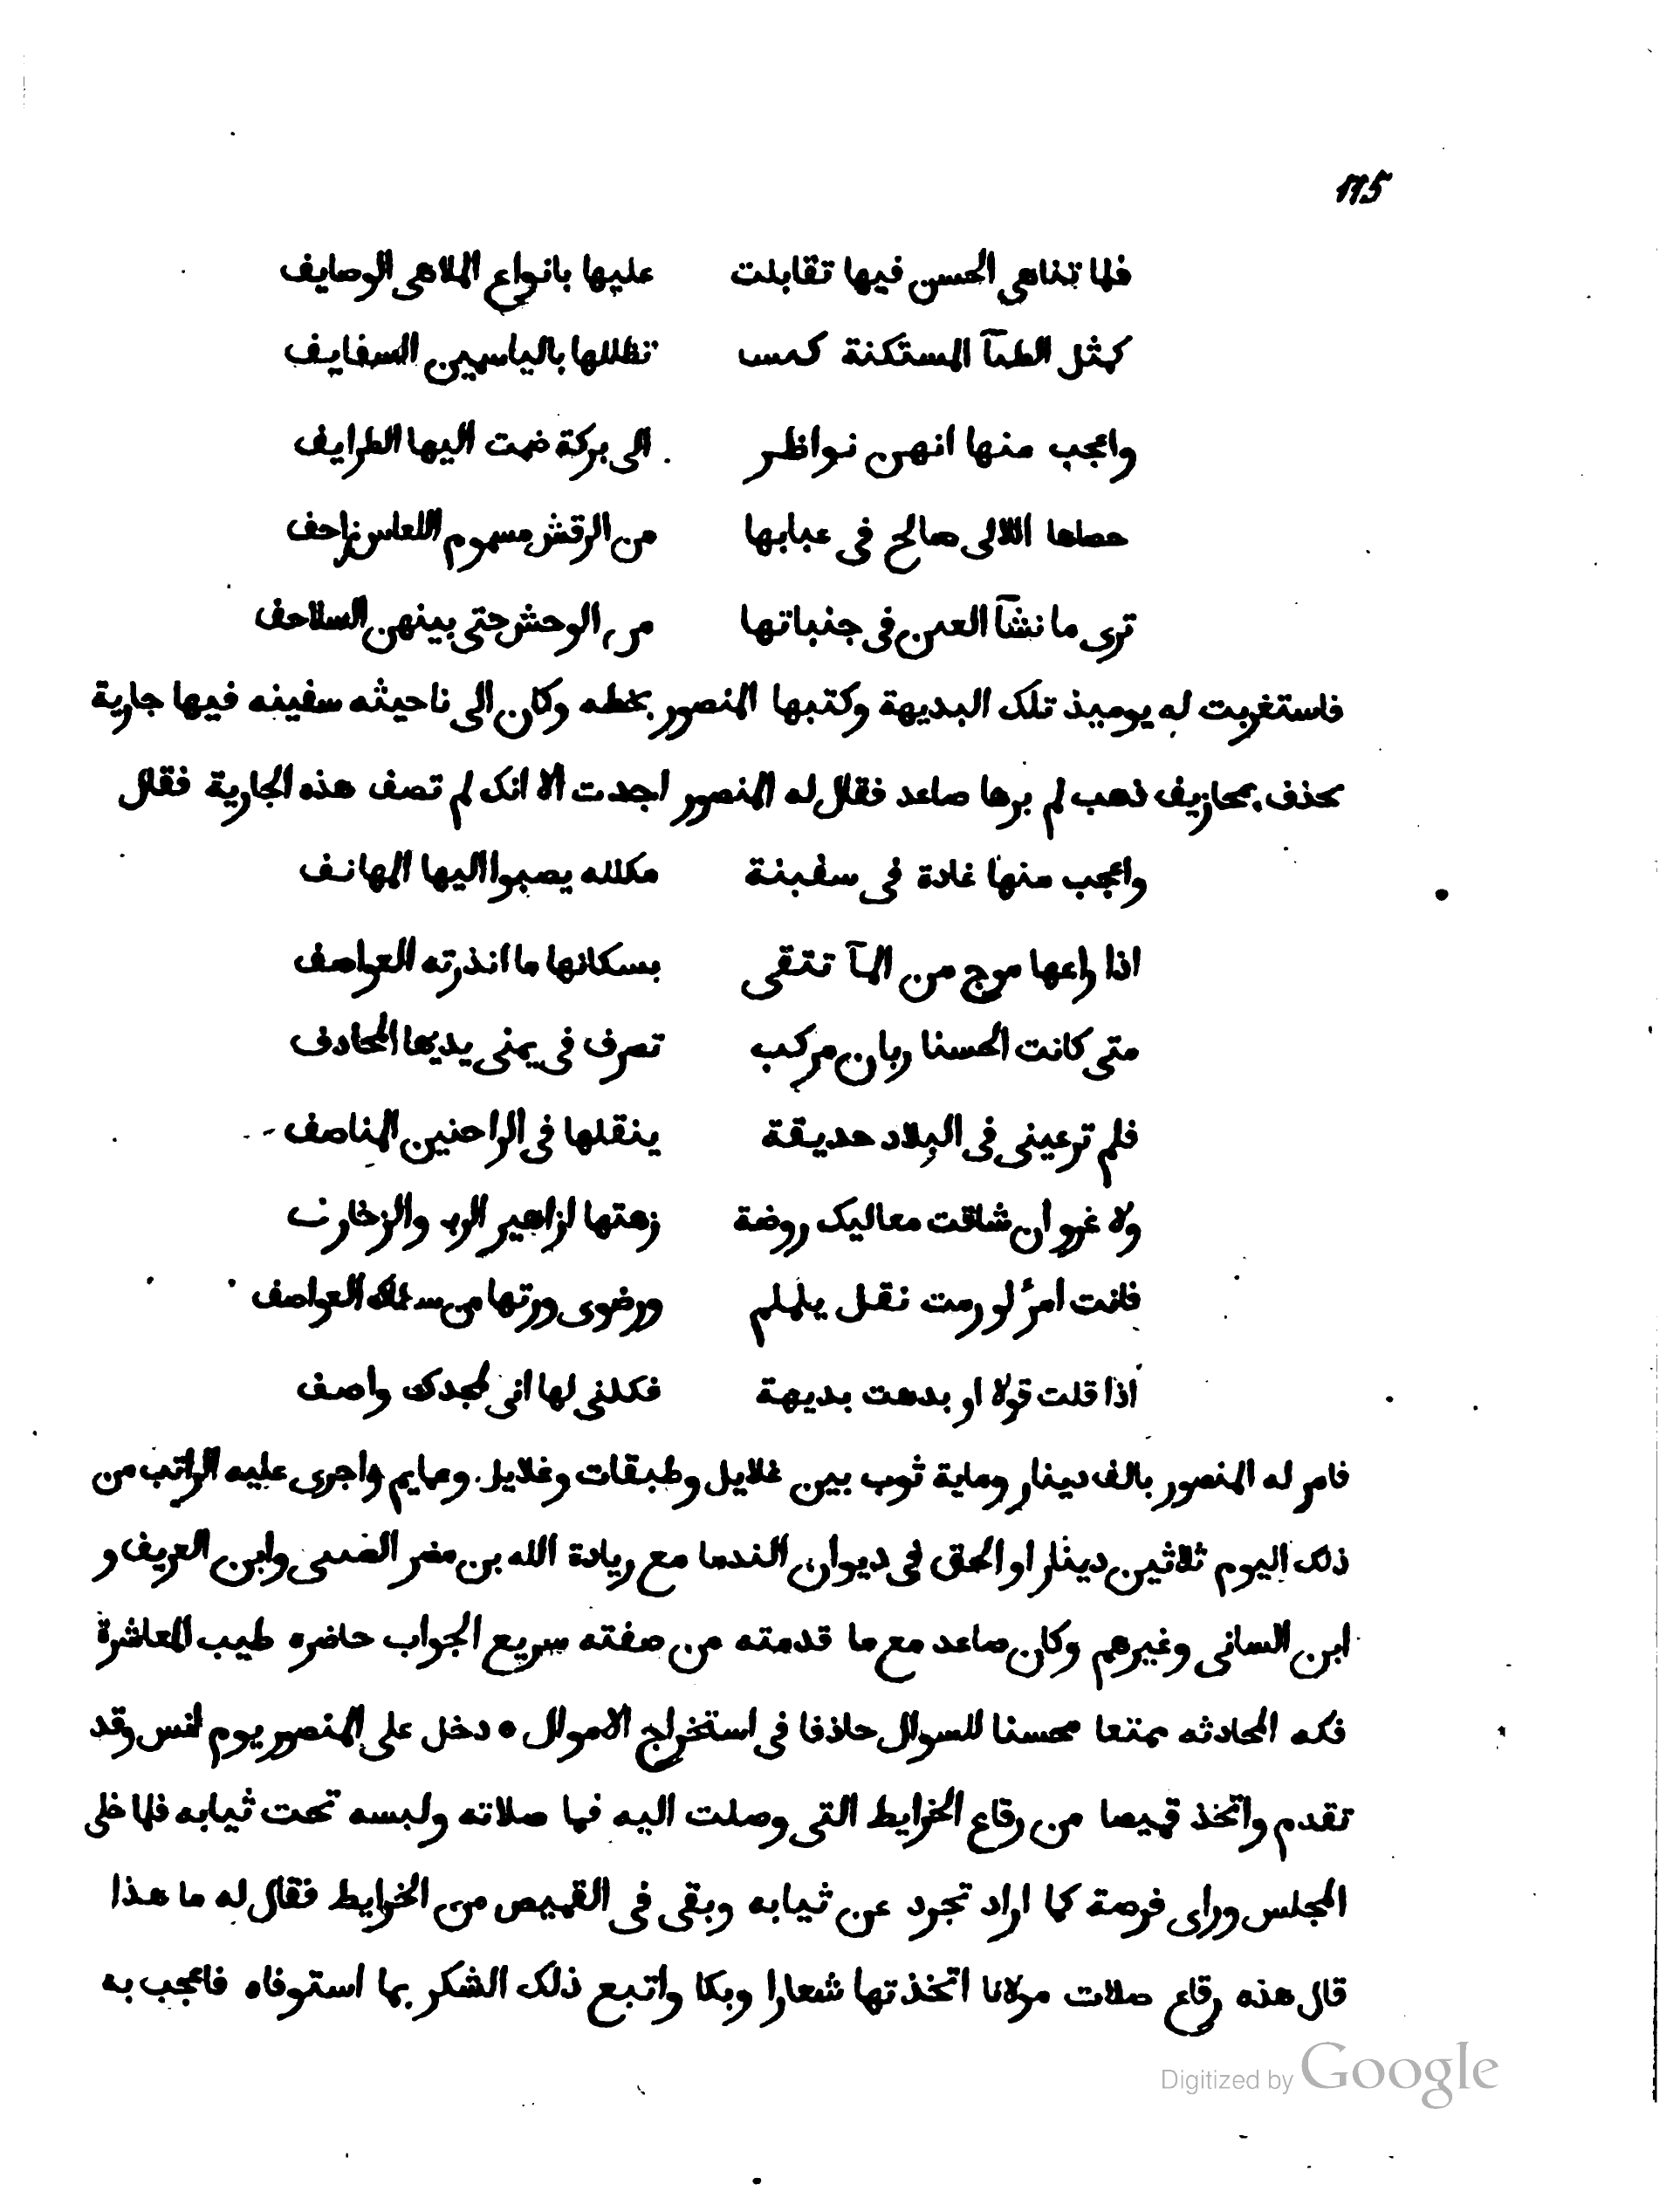 115
فلما تناهى الحسن فيها تقابلت عليها بانواع الملاهى الوصايف
كمثل الظبآ المستكنة كنسا تظللها بالياسمين السفايف
واعجب منها انهن نواظر الى بركة ضمت اليها الطرايف
حصاها اللالى صالح فى عبابها من الرقش مسموم اللعاس زاحف
ترى ما نشآ العين فى جنباتها من الوحش حتى بينهن السلاحف
فاستغربت له يوميذ تلك البديهة وكتبها المنصور بخطه وكان الى ناحيثه سفينه فيها جارية
بحذف بمحازيف ذهب لم يرها صاعد فقال له المنصور اجدت الا انك لم تصف هذه الجارية فقال
واعجب منها غادة فى سفينة مكللة يصبوا اليها المهانف
اذا راعها موج من المآ تتقى بسكانها ما انذرته العواصف
متى كانت الحسنا ربان مركب تصرف فى يمنى يديها المحادف
فلم ترعينى فى البلاد حديقة ينقلها فى الراحنين المناصف
ولا غرو ان شاقت معاليك روضة زهتها ازاهير الرب والزخارف
فانت امرؤ لو رمت نقل يلملم ورضوى ورتها من العواصف
اذا قلت قولا او بدهت بديهة فكلنى لها انى لمجدك واصف
فامر له المنصور بالف دينار وماية ثوب بين غلايل وطبقات وغلايل وعمايم واجرى عليه الراتب من
ذلك اليوم ثلاثين دينار او الحق فى ديوان الندما مع ريادة الله بن مضر الضبى وابن العريف و
ابن السانى وغيرهم وكان صاعد مع ما قدمته من صفته سريع الجواب حاضره طيب المعاشرة
فكه المحادثه ممتعا محسنا للسوال حاذفا فى استخراج الاموال ٥ دخل على المنصور يوم انس وقد
تقدم واتخذ قميصا من رقاع الخرايط التى وصلت اليه فما صلاته ولبسه تحت ثيابه فلما خلى
المجلس وراى فرصة كما اراد تجرد عن ثيابه وبقى فى القميص من الخرايط فقال له ما هذا
قال هذه رقاع صلات مولانا اتخذتها شعارا وبكا واتبع ذلك الشكر بما استوفاه فاعجب به
Digitized by Google